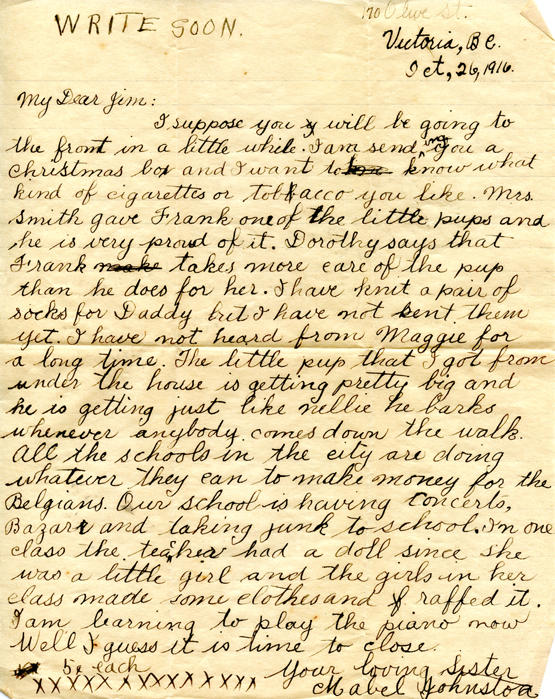 WRITE SOON.
170 Olive St.
Victoria, B.C.
Oct, 26, 1916.
My Dear Jim:
I suppose you will be going to
the front in a little while. I am sending you a
Christmas box and I want to know what
kind of cigarettes or tobacco you like. Mrs.
Smith gave Frank one of the little pups and
he is very proud of it. Dorothy says that
Frank takes more care of the pup
than he does for her. I have knit a pair of
socks for Daddy but I have not sent them
yet. I have not heard from Maggie for
a long time. The little pup that I got from
under the house is getting pretty big and
he is getting just like nellie he barks
whenever anybody comes down the walk.
All the schools in the city are doing
whatever they can to make money for the
Belgians. Our school is having concerts,
Bazars and taking junk to school. In one
class the teacher had a doll since she
was a little girl and the girls in her
class made some clothes and raffed it.
I am learning to play the piano now
Well I guess it is time to close.
5¢ each Your loving Sister
xxxxxxxxxxxxxxx Mabel Johnston